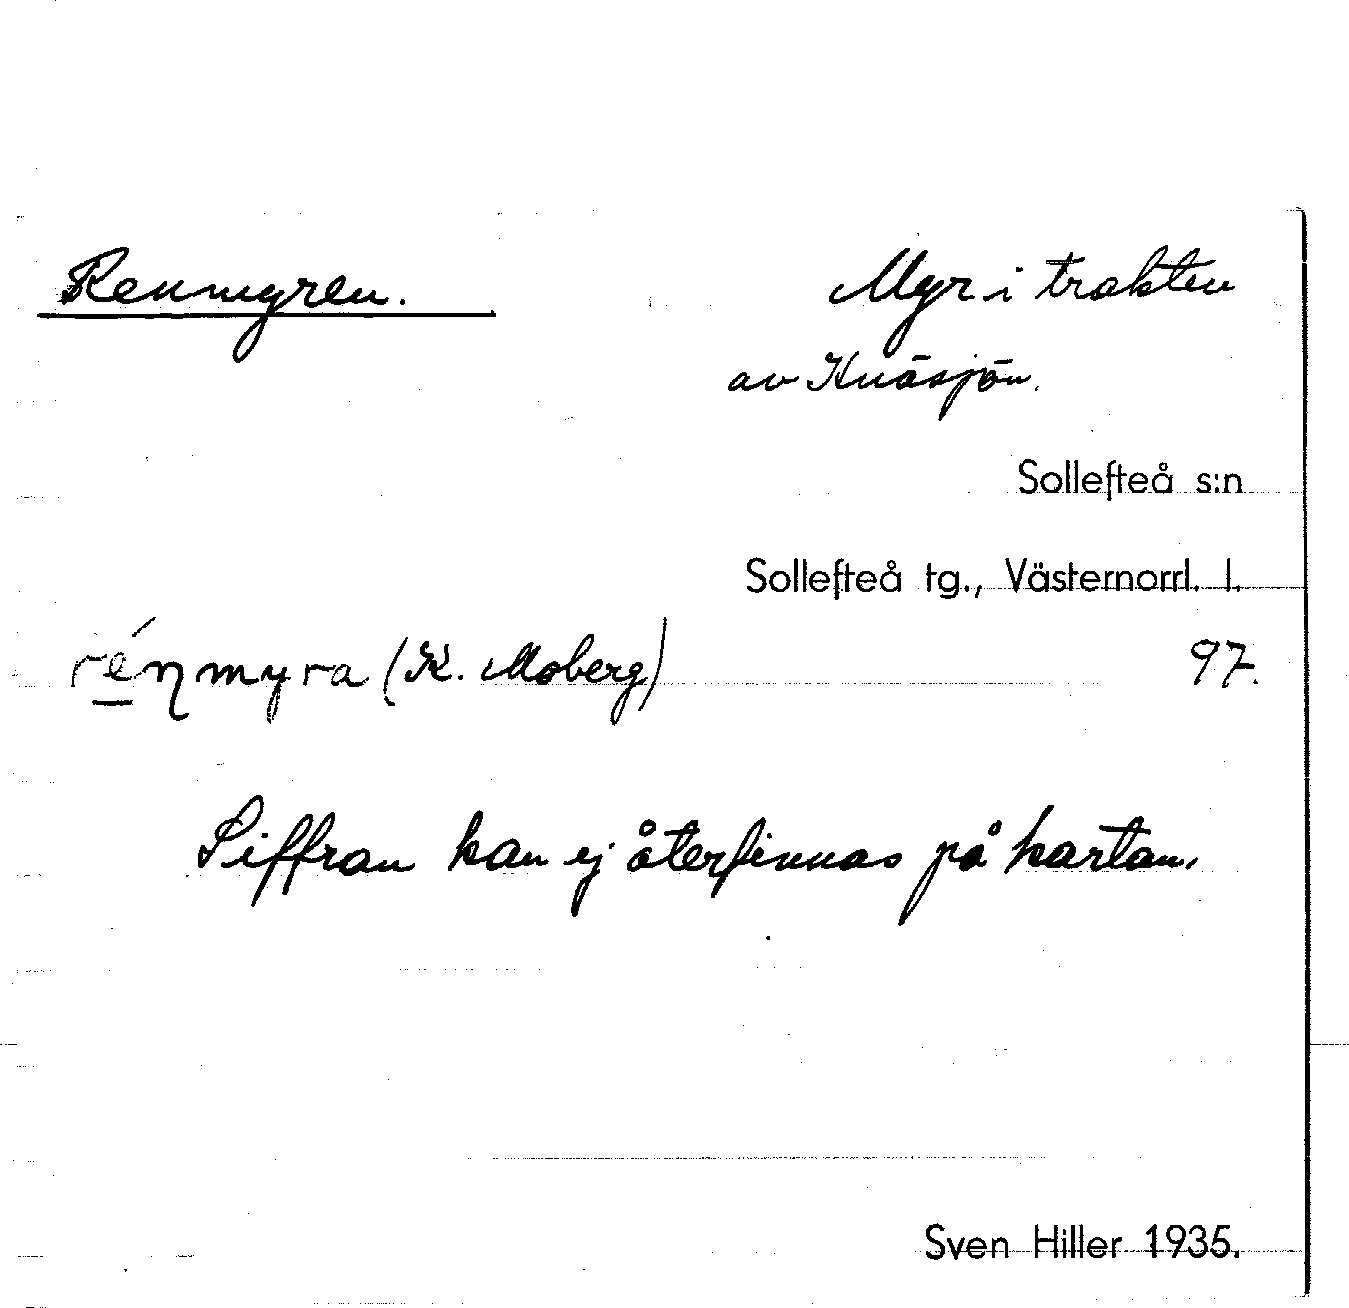 Renmyren.
Myr i trakten
av Knäsjön.
Sollefteå s:n
Sollefteå tg., Västernorrl. l.
rénmyra (K. Moberg) 97.
Siffran kan ej återfinnas på kartan.
Sven Hiller 1935.